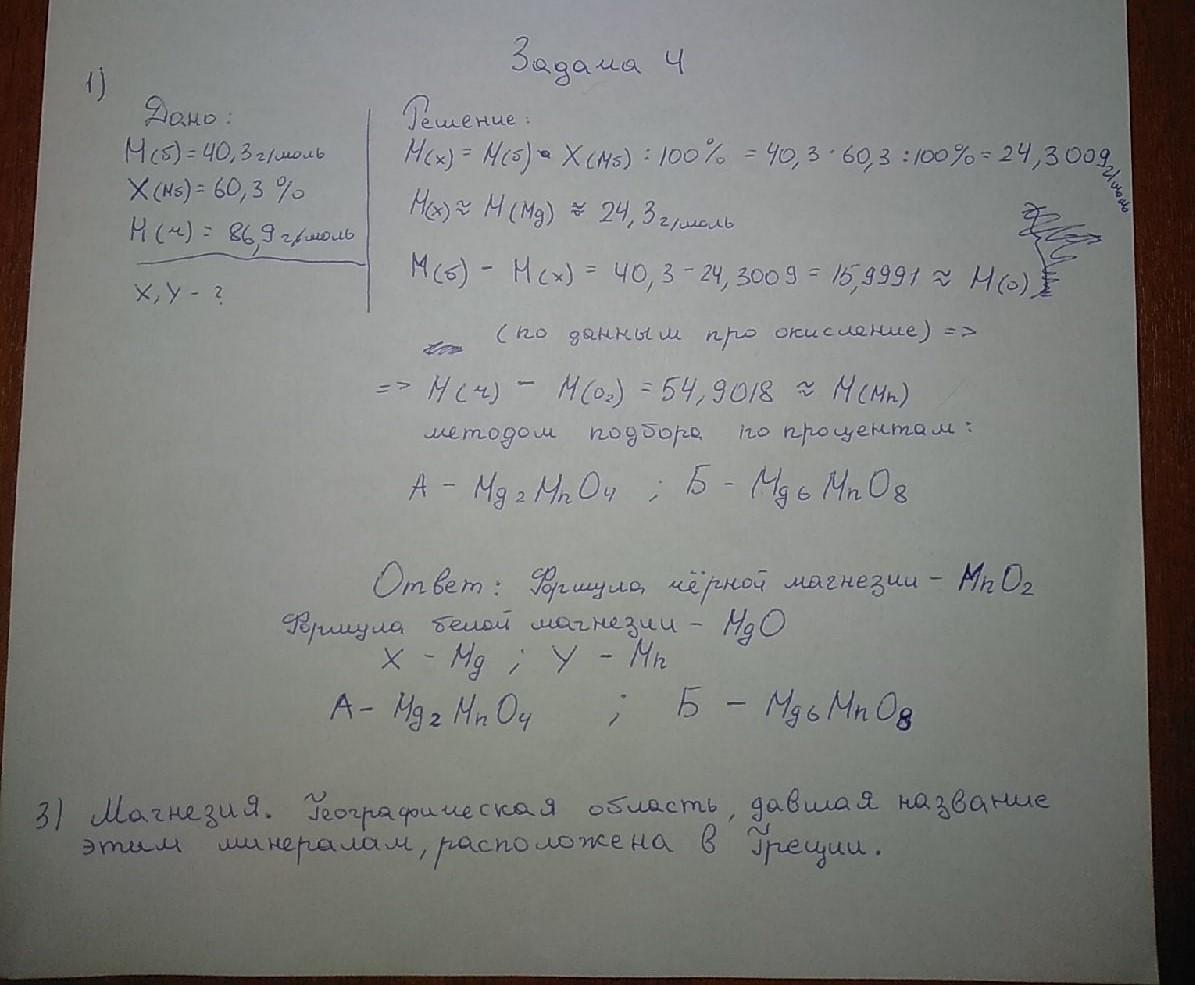 Задача 4
1)
Дано:
M(б) = 40,3 г/моль
X(Mб) = 60,3 %
M(ч) = 86,9 г/моль
X, Y - ?
Решение:
M(x) = M(б) • X(Mб) : 100% = 40,3 · 60,3 : 100% = 24,3009 г/моль
M(x) ≈ M(Mg) ≈ 24,3 г/моль
M(б) - M(x) = 40,3 - 24,3009 = 15,9991 ≈ M(O)
(по данным про окисление) =>
=> M(ч) - M(O₂) = 54,9018 ≈ M(Mn)
методом подбора по процентам:
А - Mg₂MnO₄ ; Б - Mg₆MnO₈
Ответ: Формула чёрной магнезии - MnO₂
Формула белой магнезии - MgO
X - Mg ; Y - Mn
А - Mg₂MnO₄ ; Б - Mg₆MnO₈
3) Магнезия. Географическая область, давшая название
этим минералам, расположена в Греции.